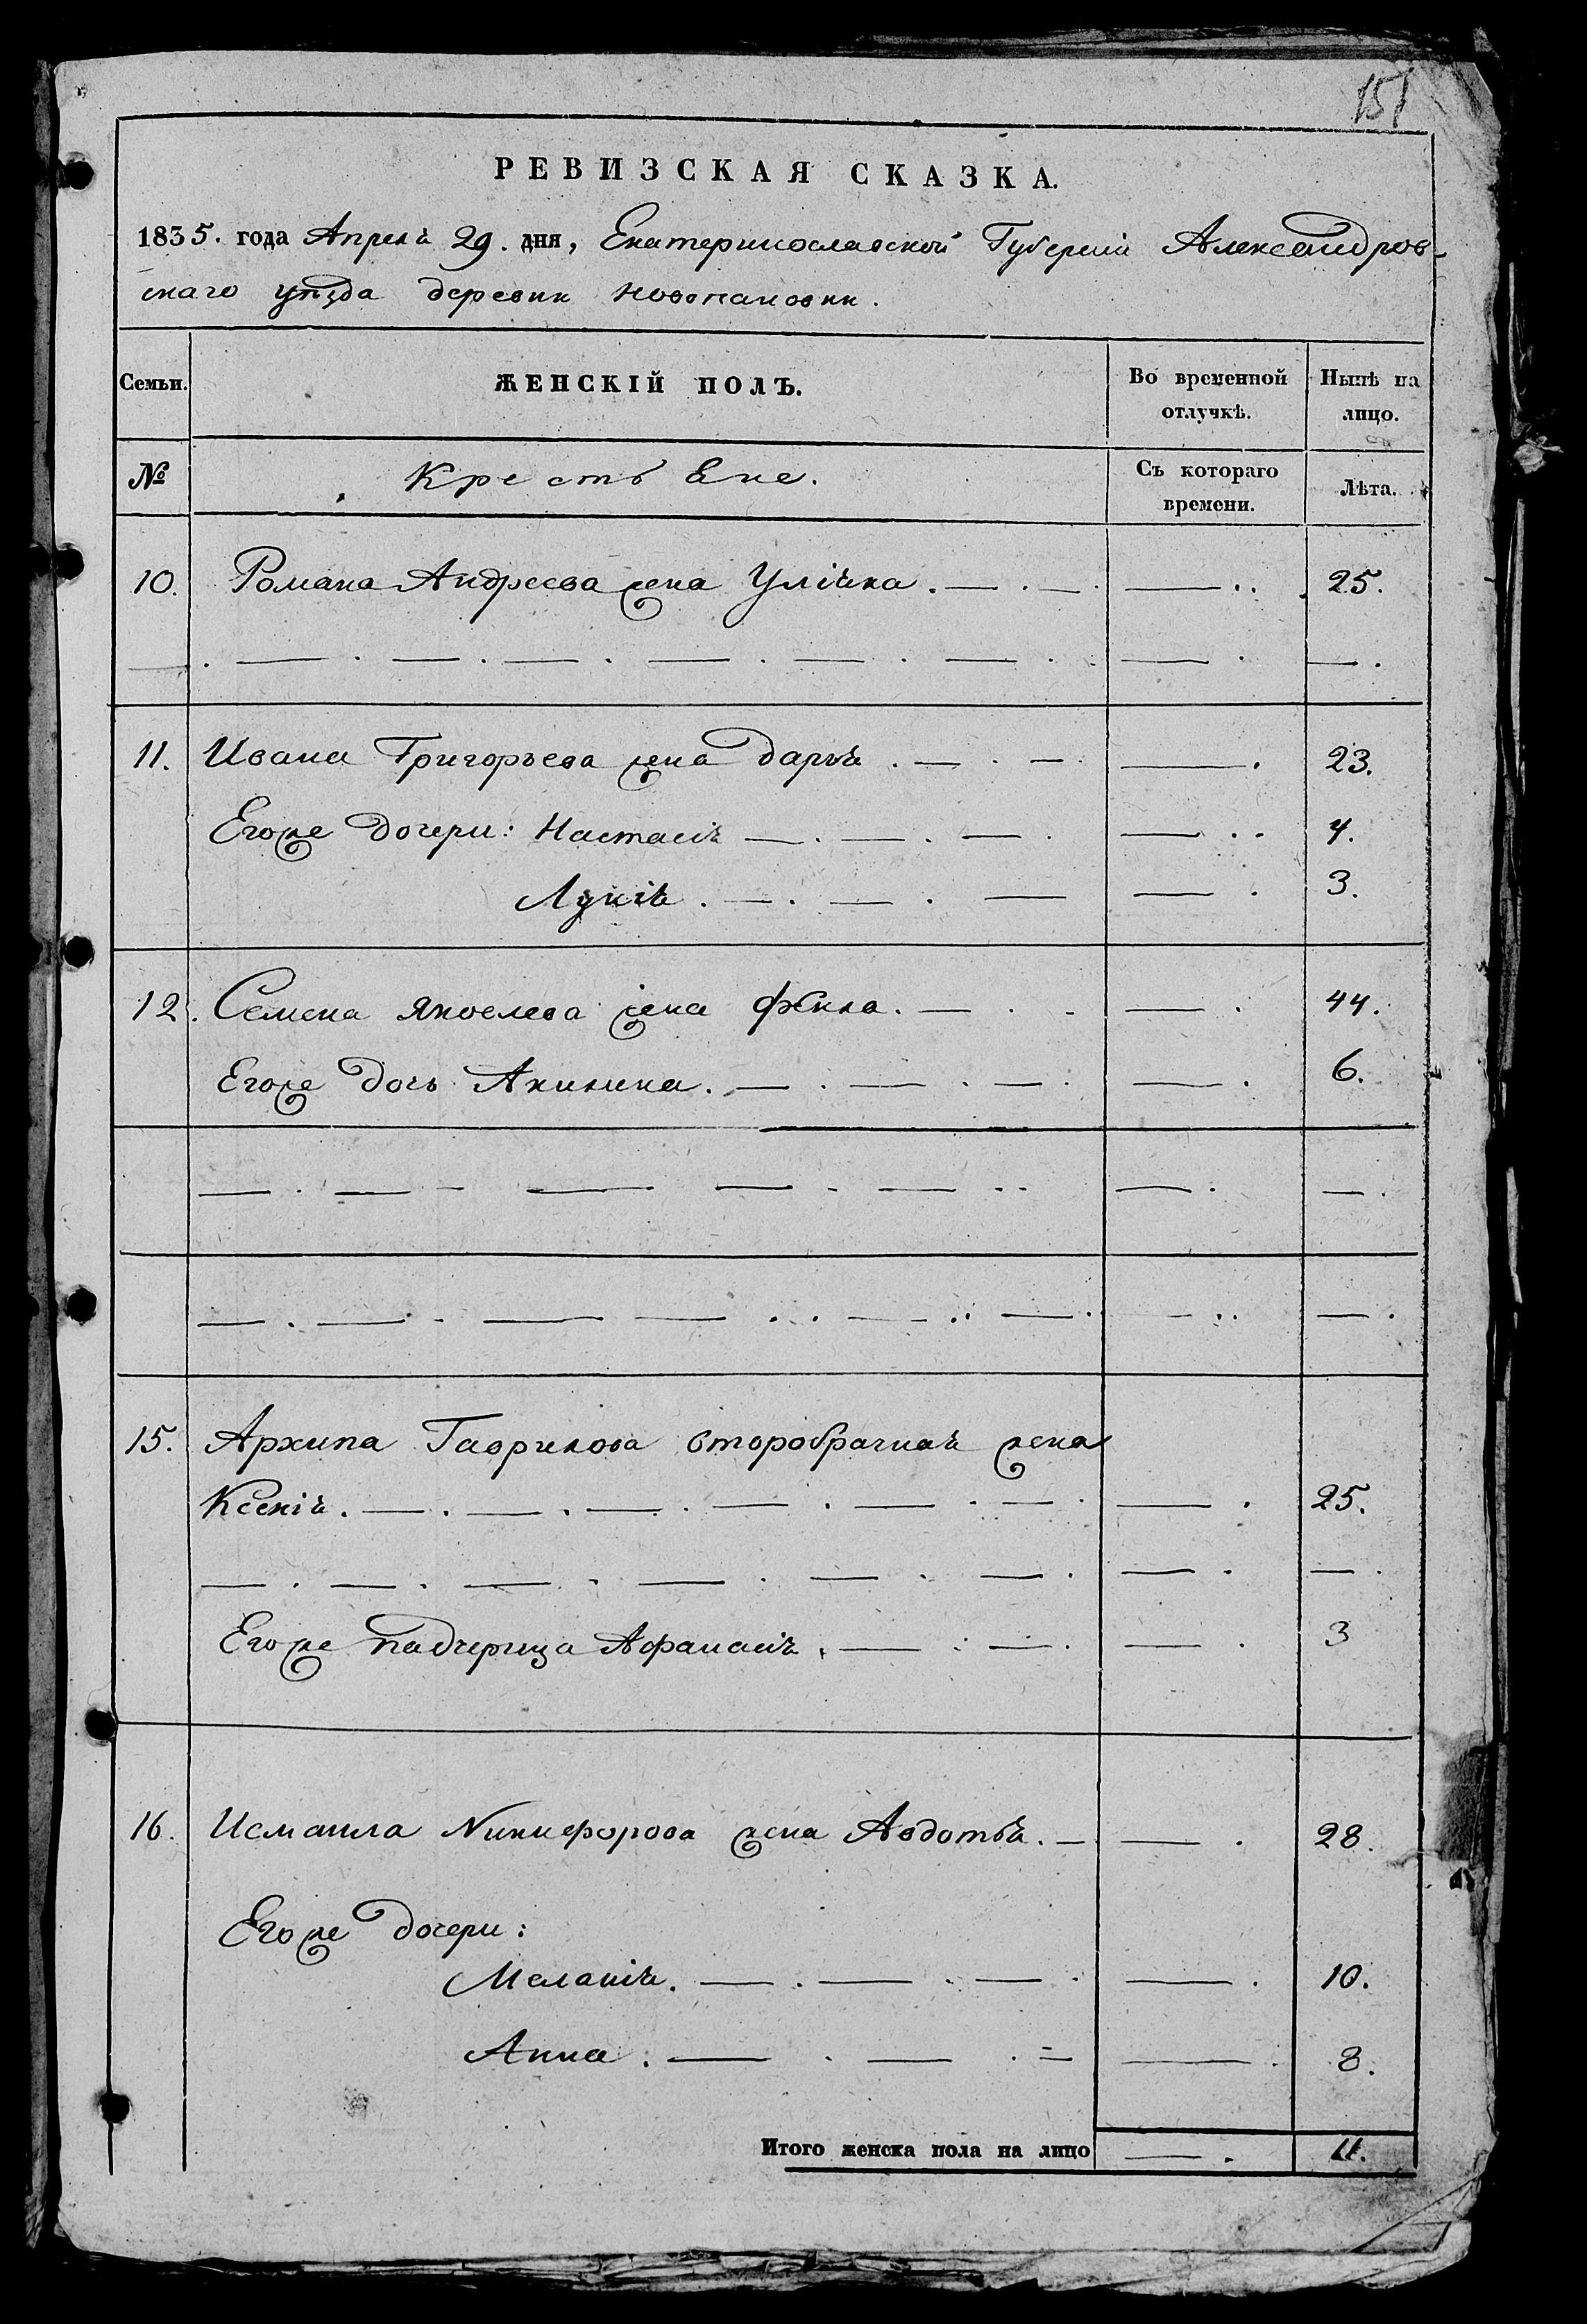 151
РЕВИЗСКАЯ СКАЗКА.
1835. года Апреля 29. дня, Екатеринославской Губерніи Александров-
скаго уѣзда деревни Новопановки.
Семьи.
ЖЕНСКІЙ ПОЛЪ.
Во временной отлучкѣ.
Нынѣ на лицо.
№
Крестьяне.
Съ котораго времени.
Лѣта.
10. Романа Андреева жена Уліяна. 25.
11. Ивана Григорьева жена Дарья. 23.
Егоже дочери: Настасія 4.
Лукія. 3.
12. Семена Яковлева жена Фекла. 44.
Егоже дочь Акилина. 6.
15. Архипа Гаврилова второбрачная жена
Ксенія. 25.
Егоже падчерица Афанасія. 3
16. Исмаила Никифорова жена Авдотья. 28.
Егоже дочери:
Меланія. 10.
Анна. 8.
Итого женска пола на лицо 11.